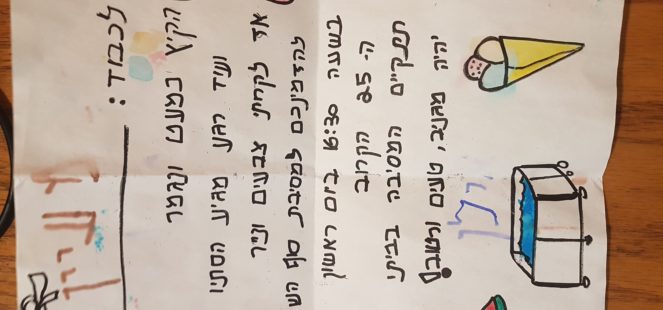 לכבוד:
מעיין
הקיץ כמעט ונגמר
ועוד רגע מגיע הסתיו
אז לקחתי צבעים ונייר
להזמינכם למסיבת סוף הש
בשעה 16:30 ביום ראשון
ה- 25 הקרוב
תתקיים המסיבה בביתי
יהיה מגניב, טעים ורטוב!